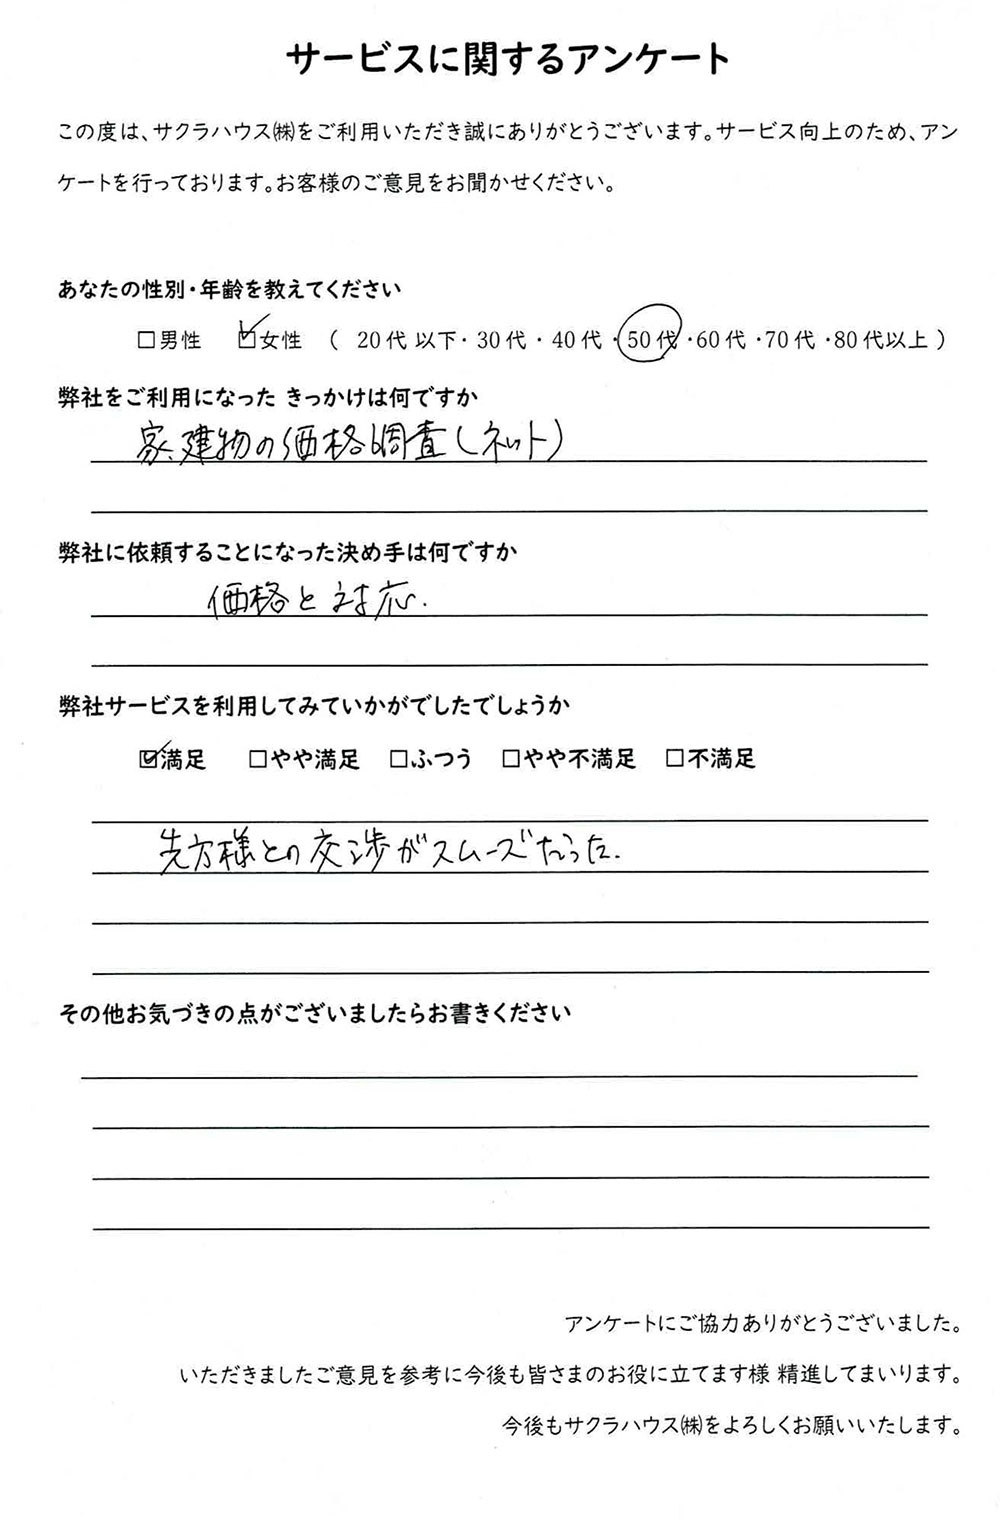 サービスに関するアンケート
この度は、サクラハウス㈱をご利用いただき誠にありがとうございます。サービス向上のため、アン
ケートを行っております。お客様のご意見をお聞かせください。
あなたの性別・年齢を教えてください
□男性 ☑女性 ( 20代 以下・30代・40代・50代・60代・70代・80代以上 )
弊社をご利用になった きっかけは何ですか
家、建物の価格調査(ネット)
弊社に依頼することになった決め手は何ですか
価格と対応.
弊社サービスを利用してみていかがでしたでしょうか
☑満足 □やや満足 □ふつう □やや不満足 □不満足
先方様との交渉がスムーズだった.
その他お気づきの点がございましたらお書きください
アンケートにご協力ありがとうございました。
いただきましたご意見を参考に今後も皆さまのお役に立てます様 精進してまいります。
今後もサクラハウス㈱をよろしくお願いいたします。